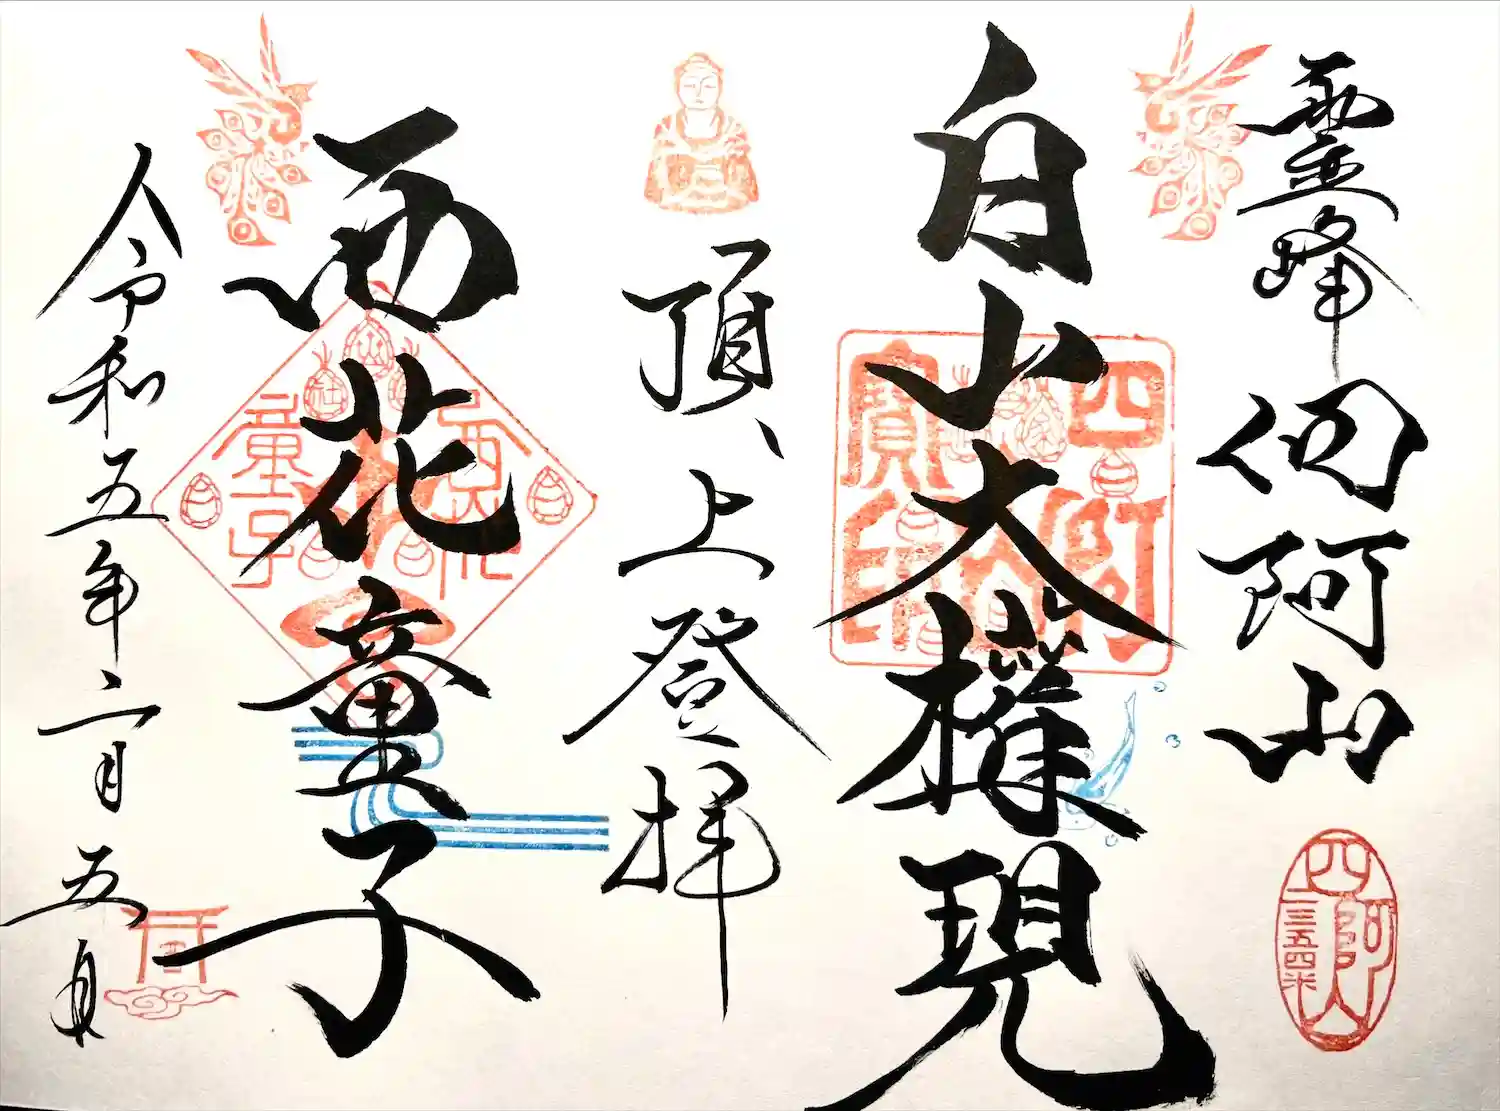 霊峰 四阿山
白山大權現
頂上登拝
西花童子
令和五年二月五日
四阿山
寳印
四阿山
三五四米
西花
童子